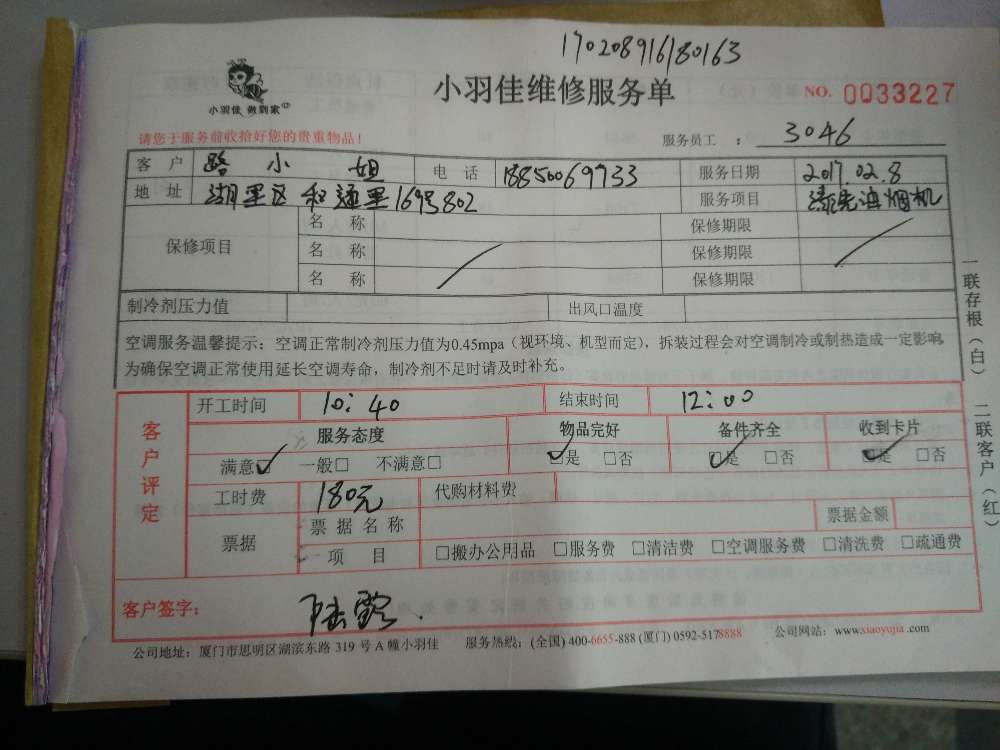 17020891680163
小羽佳 做到家
小羽佳维修服务单 NO. 0033227
请您于服务前收拾好您的贵重物品！ 服务员工 ： 3046
客 户 路小姐 电 话 18850069733 服务日期 2017.02.8
地 址 湖里区和通里169号802 服务项目 清洗油烟机
保修项目 名 称 保修期限
名 称 保修期限
名 称 保修期限
制冷剂压力值 出风口温度
空调服务温馨提示：空调正常制冷剂压力值为0.45mpa（视环境、机型而定），拆装过程会对空调制冷或制热造成一定影响
为确保空调正常使用延长空调寿命，制冷剂不足时请及时补充。
客户评定 开工时间 10：40 结束时间 12：00
服务态度 物品完好 备件齐全 收到卡片
满意☑ 一般□ 不满意□ ☑是 □否 ☑是 □否 ☑是 □否
工时费 180元 代购材料费
票据 票据名称 票据金额
项 目 □搬办公用品 □服务费 □清洁费 □空调服务费 □清洗费 □疏通费
客户签字：
公司地址：厦门市思明区湖滨东路 319 号 A 幢小羽佳 服务热线：(全国) 400-6655-888 (厦门) 0592-5178888 公司网站：www.xiaoyujia.com
一联存根（白） 二联客户（红）